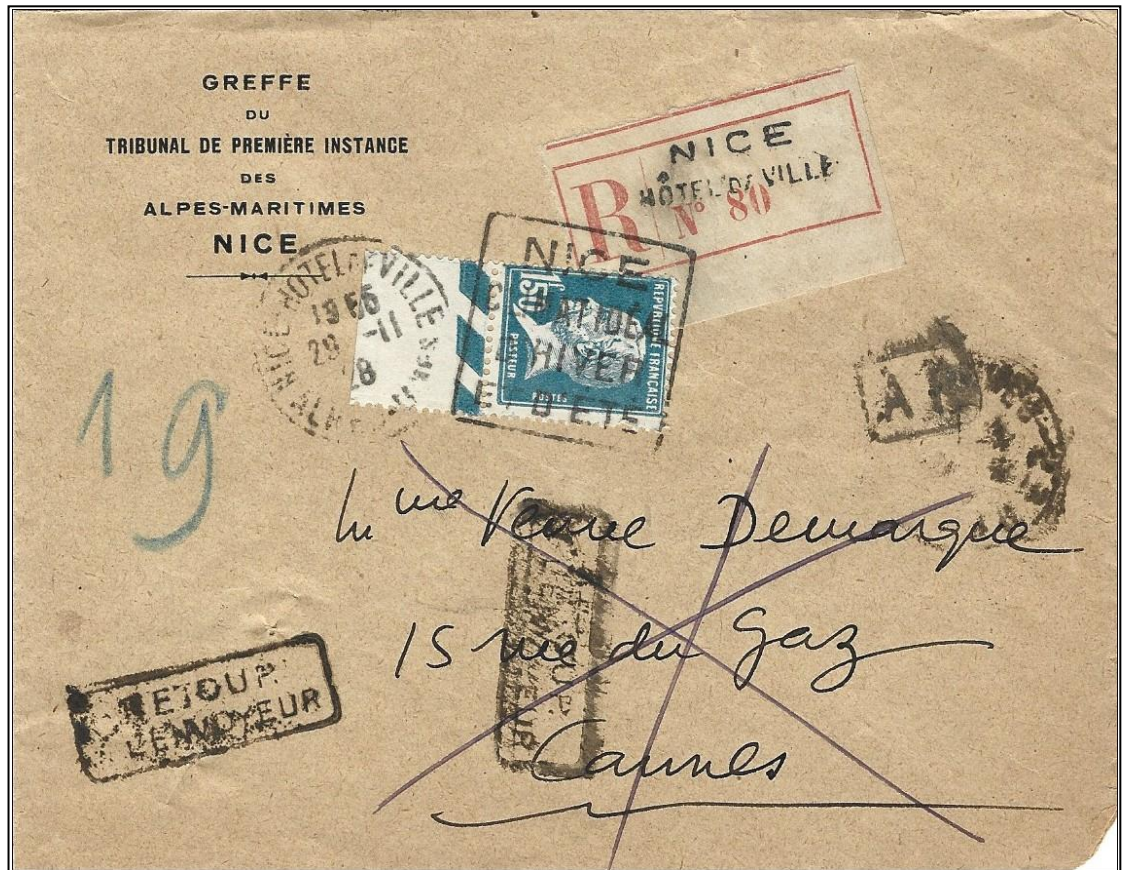 GREFFE
DU
TRIBUNAL DE PREMIÈRE INSTANCE
DES
ALPES-MARITIMES
NICE
NICE
HÔTEL DE VILLE
R N° 80
NICE-HOTEL DE VILLE
19 55
28 -11
8
NICE
D'HIVER
ET D'ETE
1F50
REPVBLIQVE FRANÇAISE
PASTEUR
POSTES
19
Mme Veuve Demarque
15 rue du Gaz
Cannes
RETOUR
L'ENVOYEUR